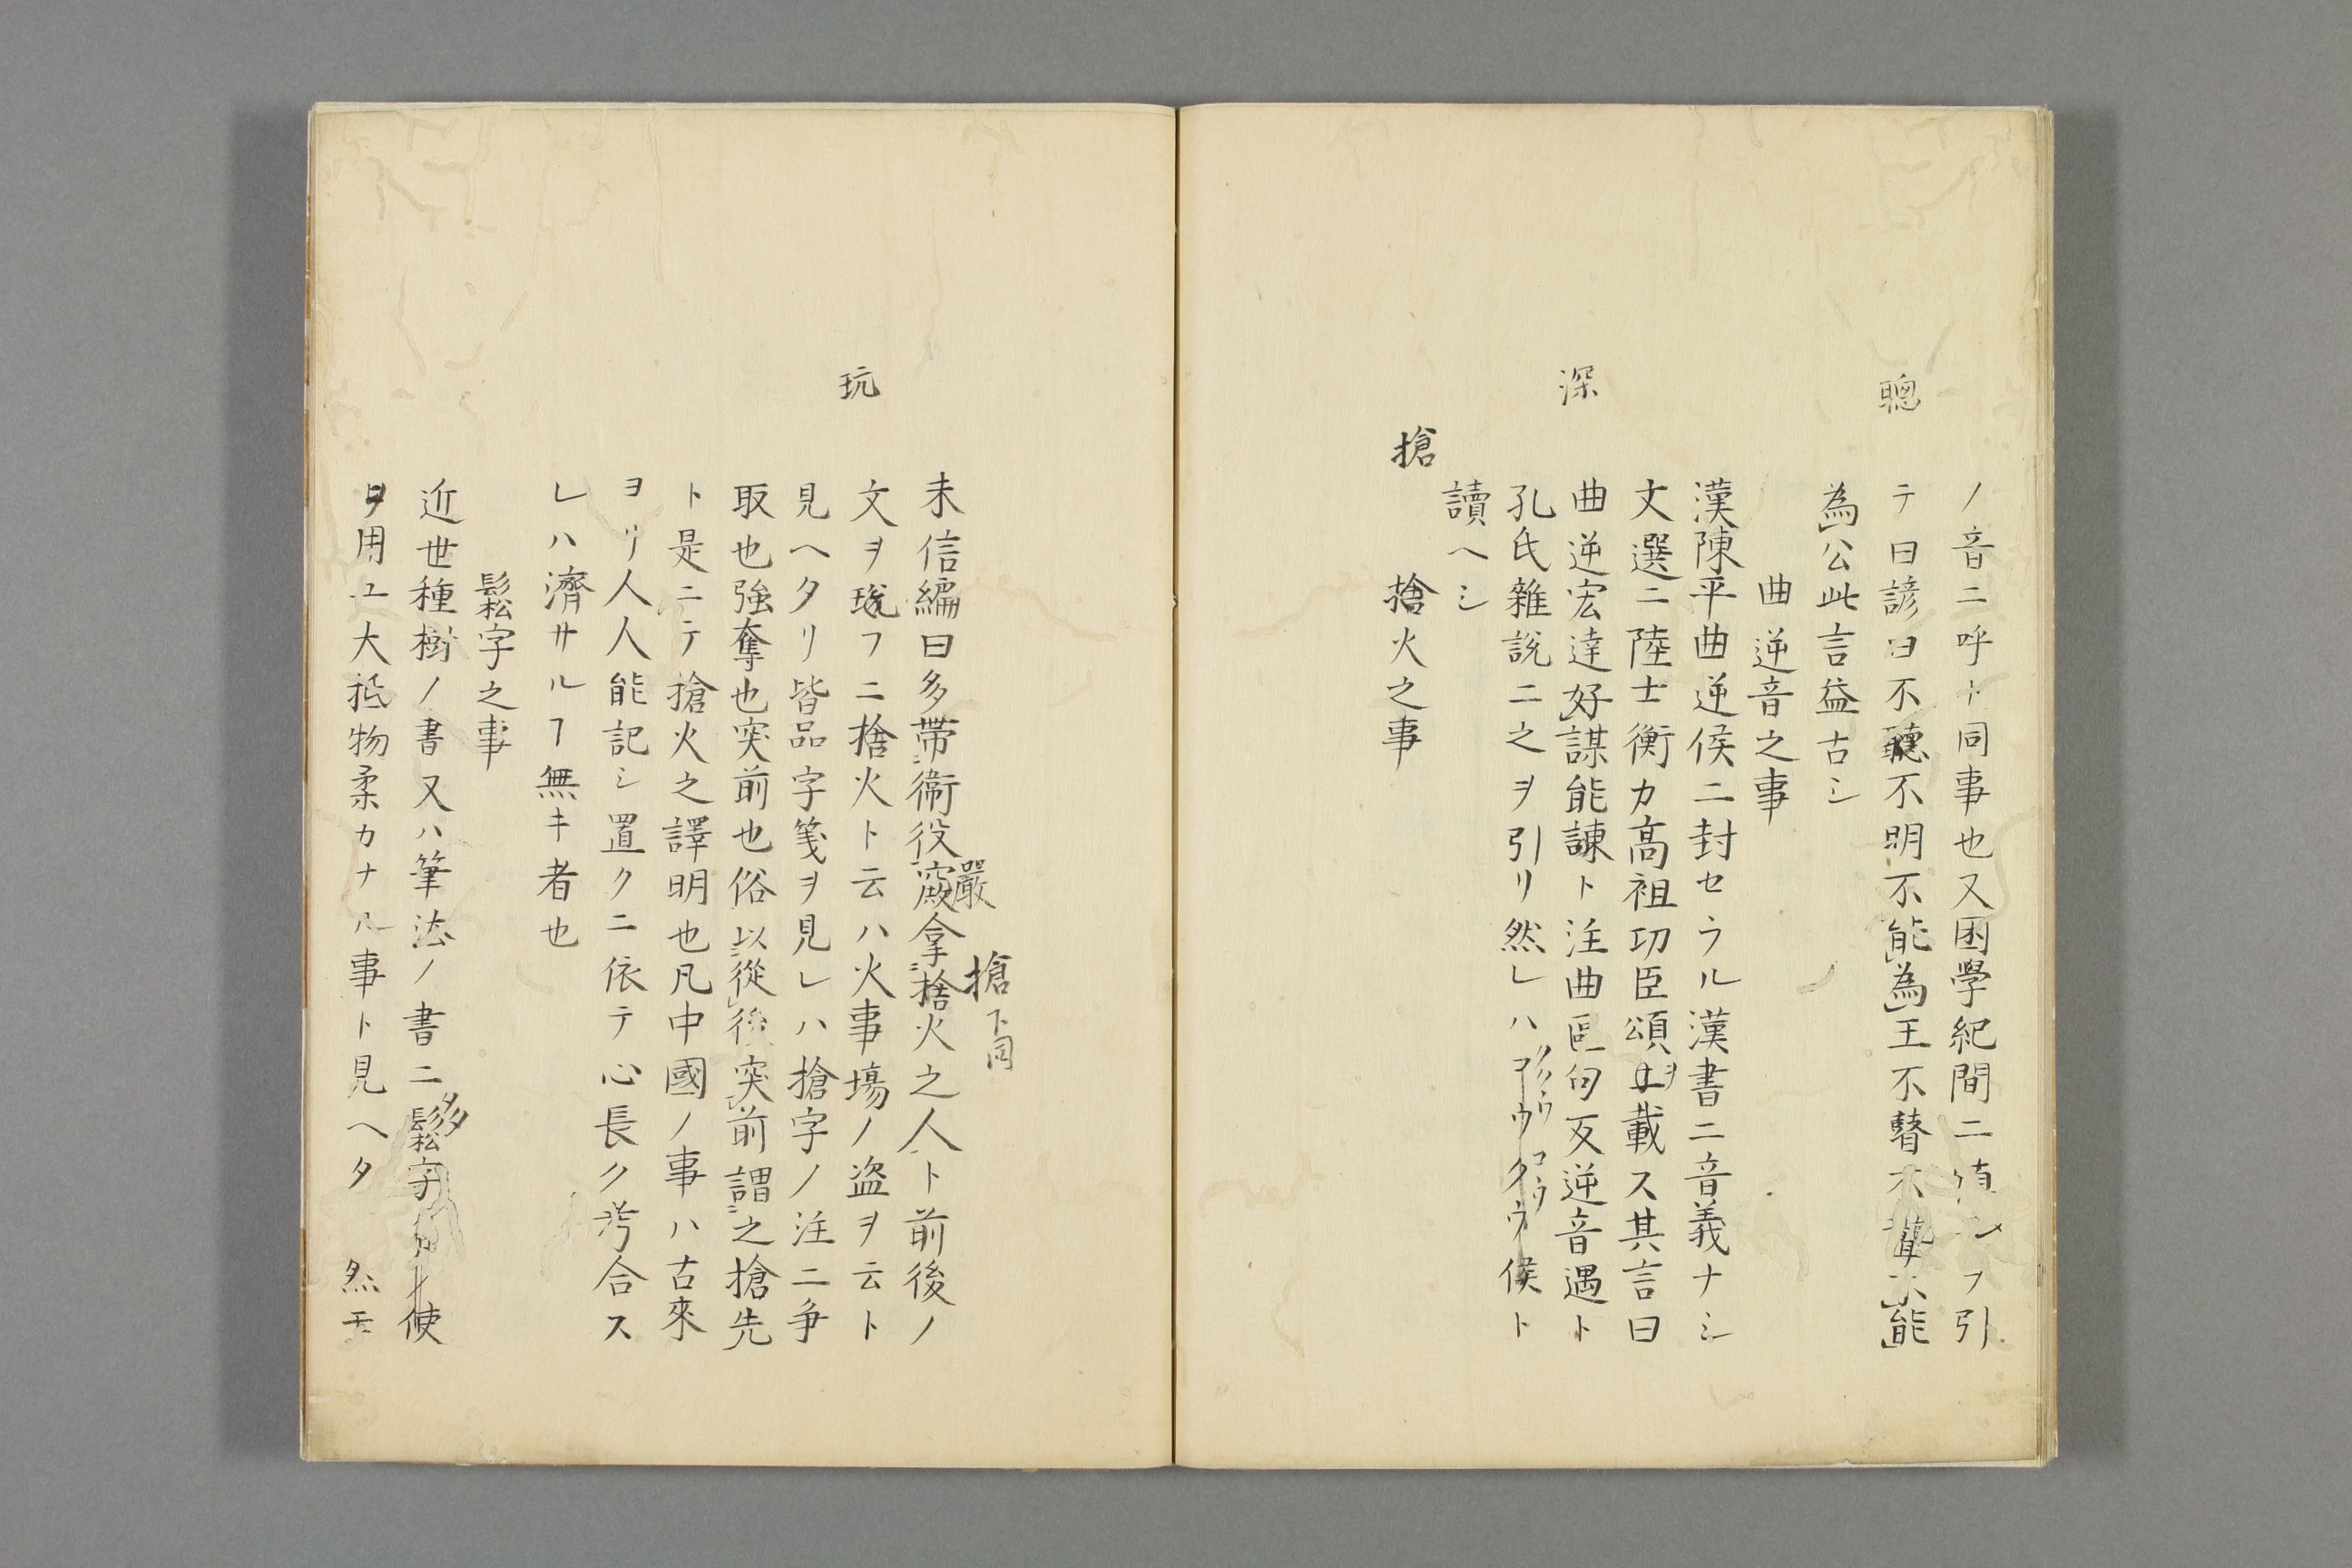 聰
ノ音ニ呼ト同事也又困學紀間ニ慎シフ引
テ曰諺曰不聽不明不能為王不瞽不聾不能
為公此言益古シ
曲逆音之事
漢陳平曲逆侯ニ封セラル漢書ニ音義ナシ
文選ニ陸士衡カ高祖功臣頌ヲ載ス其言曰
深
曲逆宏達好謀能諌ト注曲區句反逆音遇ト
孔氏雜說ニ之ヲ引リ然レハ侯ト
讀ヘシ
搶
捨火之事
嚴
搶下同
未信編曰多帶衛役嚴拿捨火之人ト前後ノ
玩
文ヲ翫フニ捨火ト云ハ火事場ノ盗ヲ云ト
見ヘタリ皆品字箋ヲ見レハ搶字ノ注ニ争
取也強奪也突前也俗以從後突前謂之搶先
ト是ニテ搶火之譯明也凡中國ノ事ハ古來
ヨリ人人能記シ置クニ依テ心長ク考合ス
レハ濟サルヿ無キ者也
鬆字之事
近世種樹ノ書又ハ筆法ノ書ニ多鬆字使
ヲ用ユ大抵物柔カナル事ト見ヘタ 然